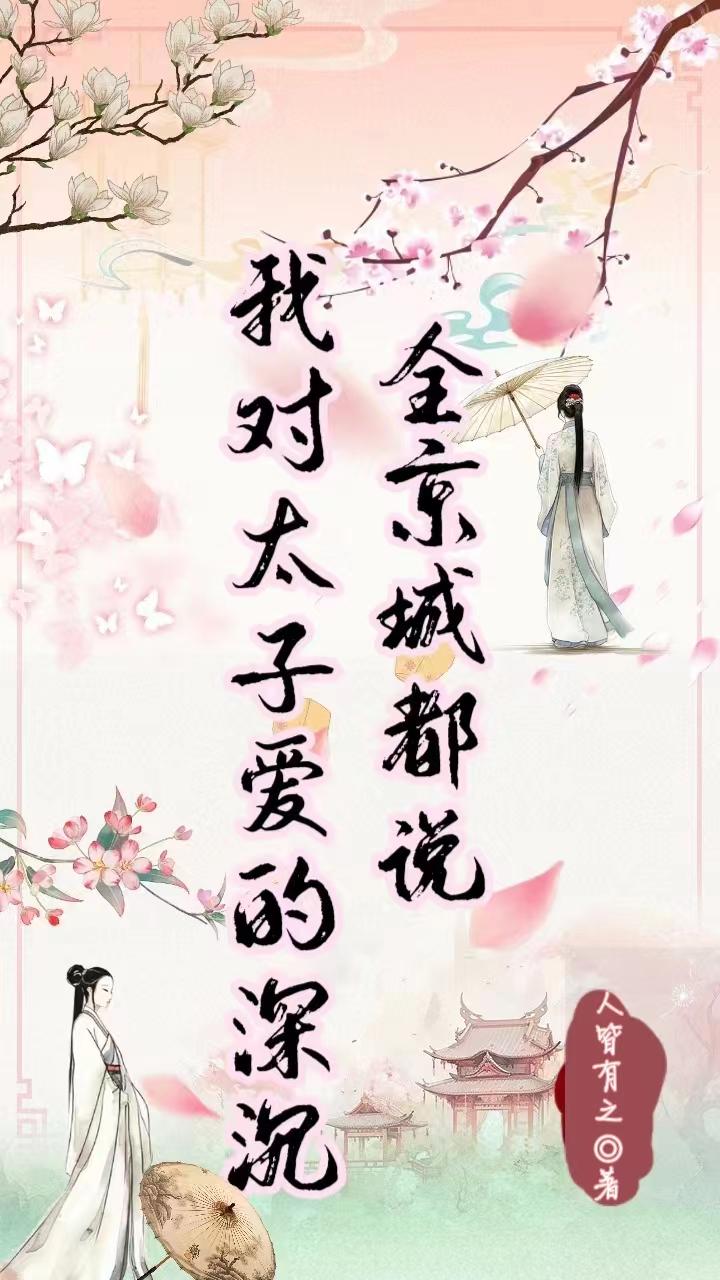 全京城都说
我对太子爱的深沉
人皆有之◎著